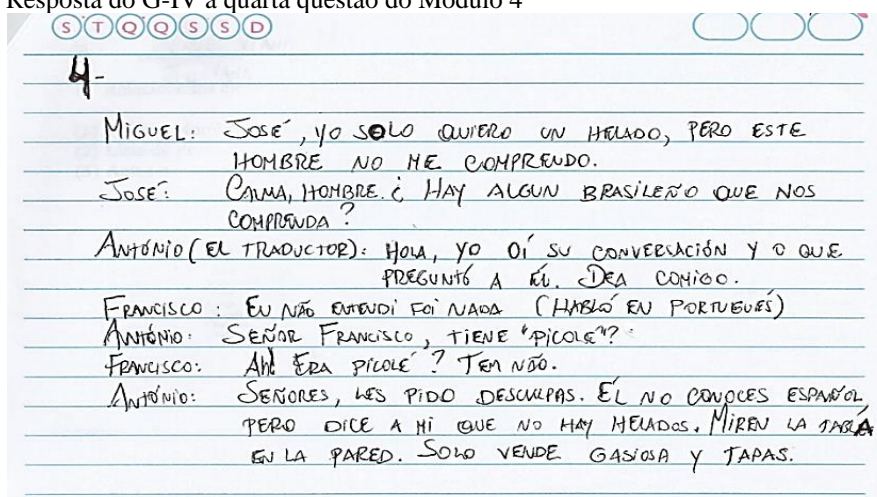 Resposta do G-IV à quarta questão do Módulo 4
S T Q Q S S D
4-
MIGUEL: JOSÉ, YO SOLO QUIERO UN HELADO, PERO ESTE
HOMBRE NO ME COMPRENDO.
JOSÉ: CALMA, HOMBRE. ¿ HAY ALGUN BRASILEÑO QUE NOS
COMPRENDA?
ANTÓNIO (EL TRADUCTOR): HOLA, YO OÍ SU CONVERSACIÓN Y O QUE
PREGUNTÓ A ÉL. DEA COMIGO.
FRANCISCO: EU NÃO ENTENDI FOI NADA (HABLÓ EN PORTUGUÉS)
ANTÓNIO: SEÑOR FRANCISCO, TIENE "PICOLÉ"?
FRANCISCO: AH! ERA PICOLÉ? TEM NÃO.
ANTÓNIO: SEÑORES, LES PIDO DESCULPAS. ÉL NO CONOCES ESPAÑOL
PERO DICE A MI QUE NO HAY HELADOS. MIREN LA TABLA
EN LA PARED. SOLO VENDE GASIOSA Y TAPAS.